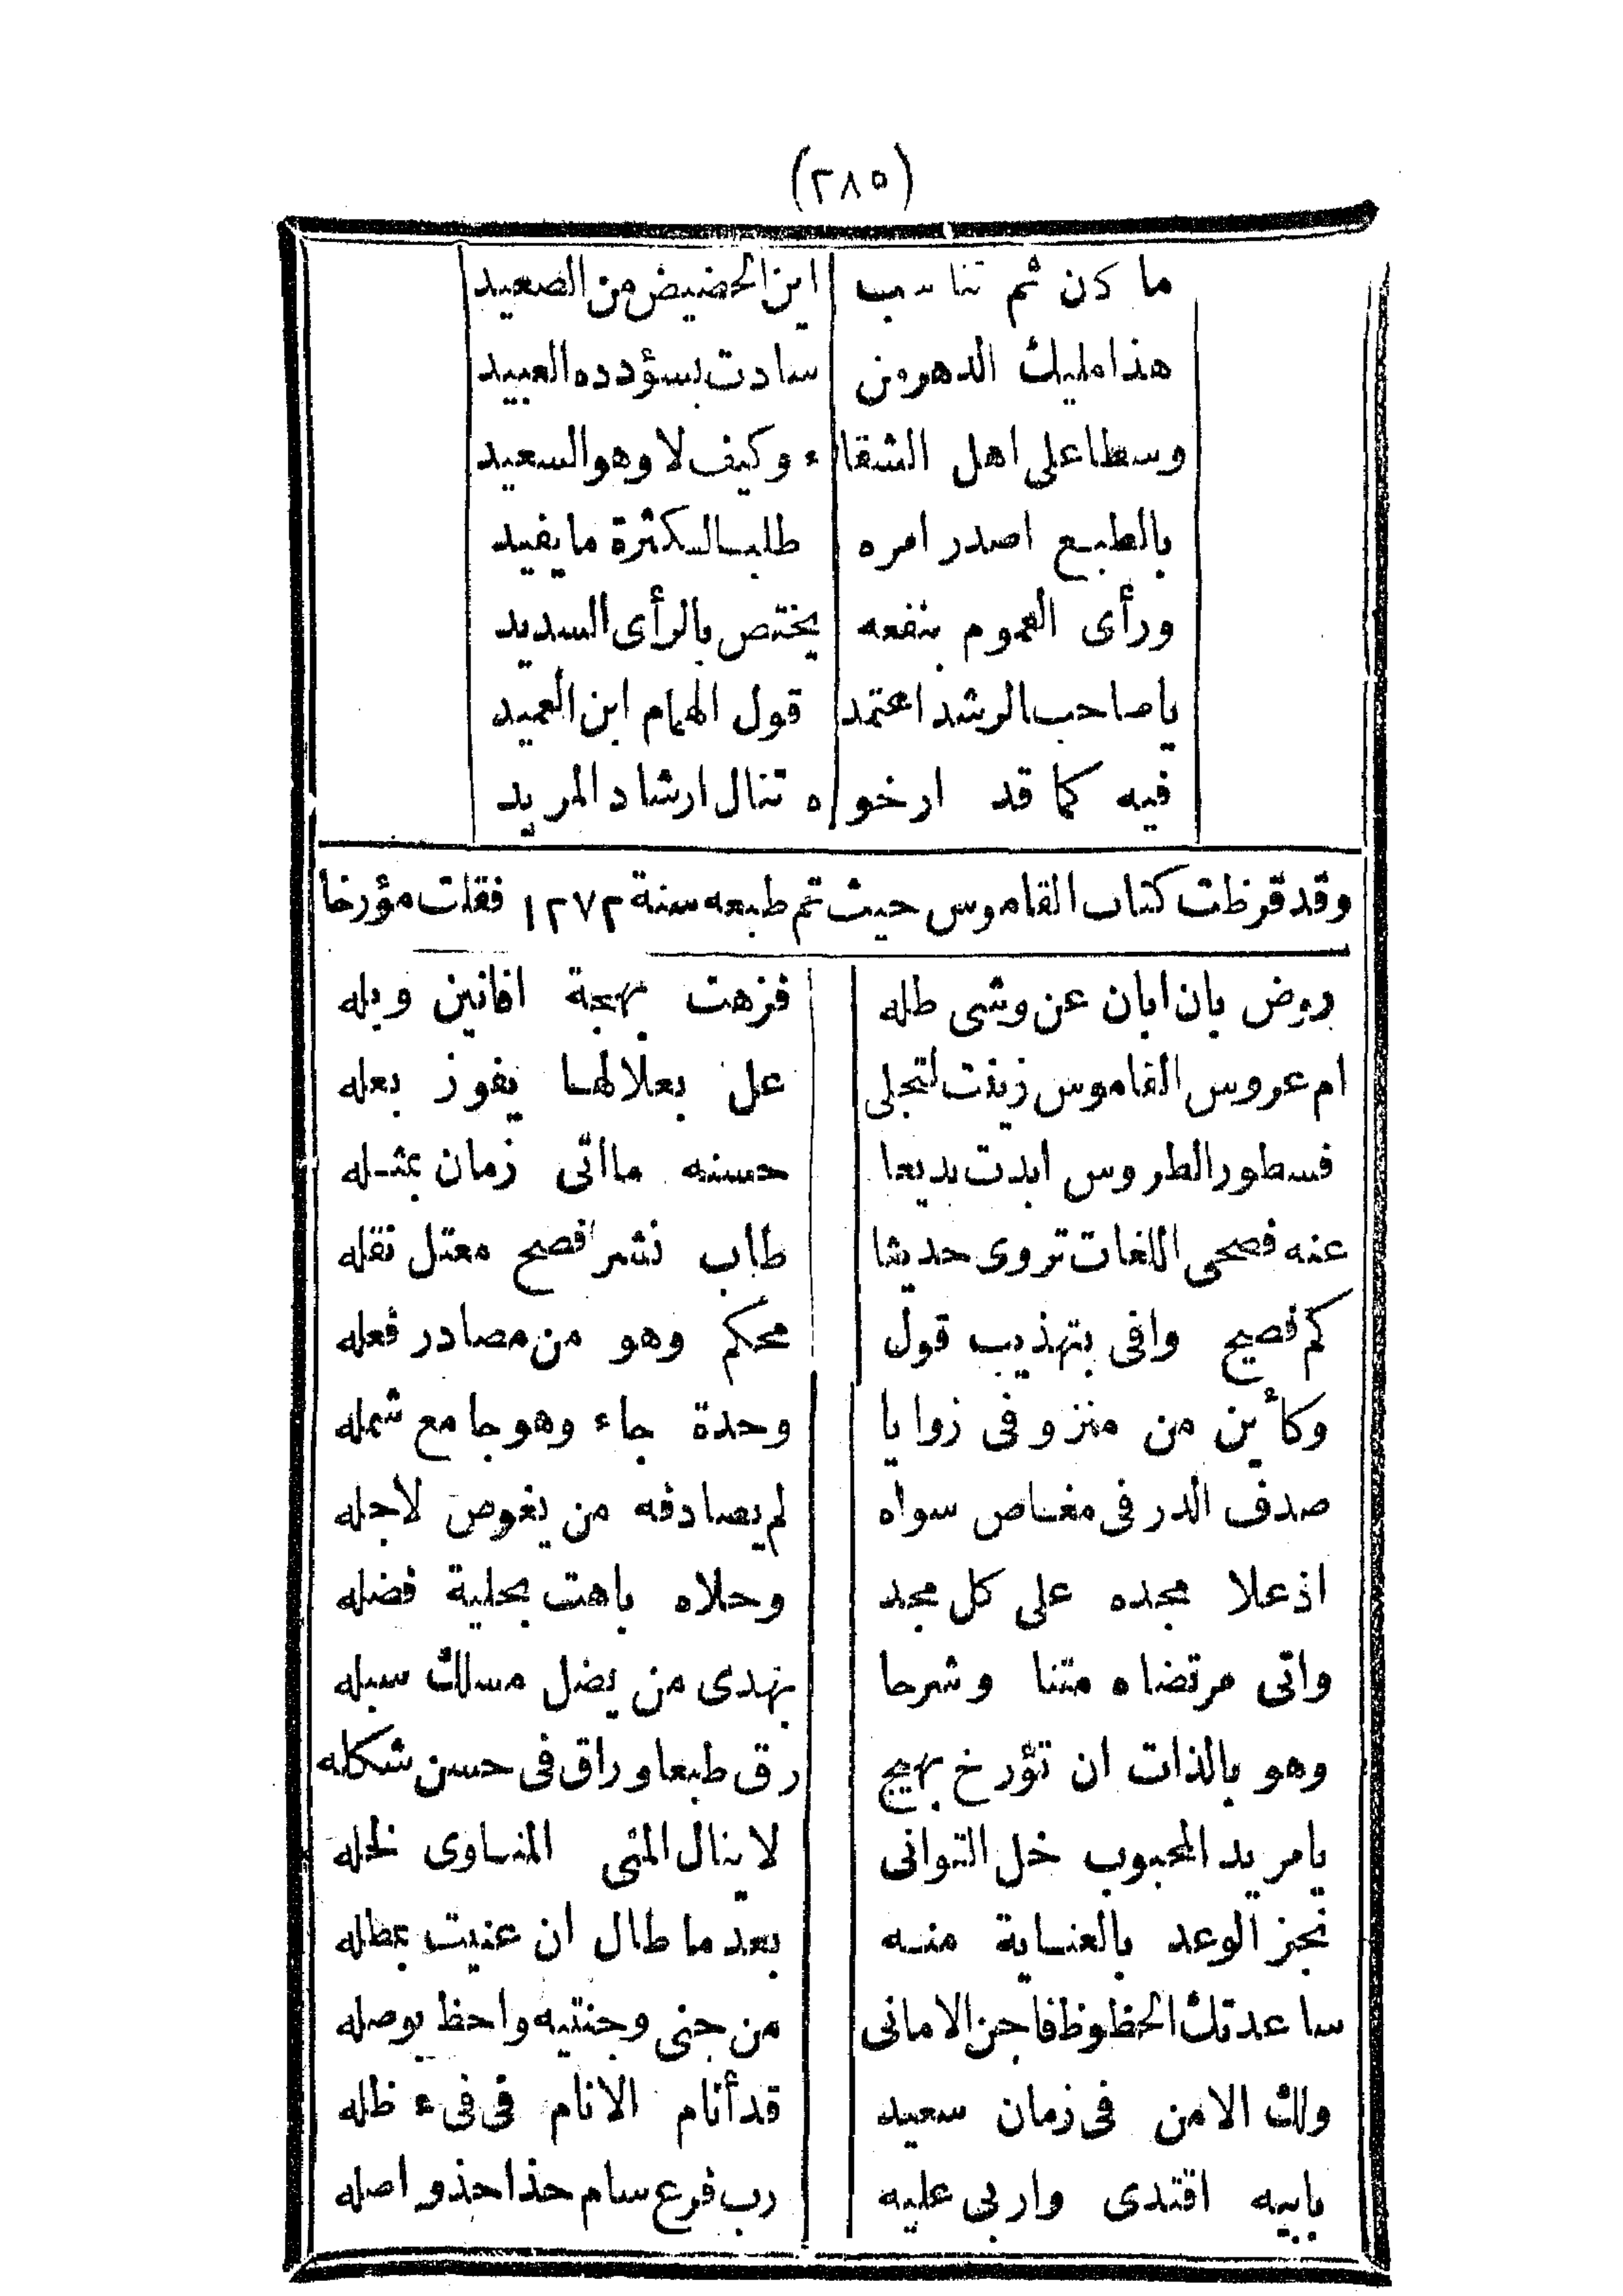 (٢٨٥)
ما كان ثم تناسب اين الحضيض من الصعيد
هذا مليك الدهر من سادت بسؤدده العبيد
وسطا على اهل الشقا ء وكيف لا وهو السعيد
بالطبع اصدر امره طلبا لكثرة ما يفيد
ورأى العموم بنفعه يختص بالرأى السديد
يا صاحب الرشد اعتمد قول الهمام ابن العميد
فيه كما قد ارخوا ه تنال ارشاد المريد
وقد قرظت كتاب القاموس حيث تم طبعه سنة ١٢٧٢ فقلت مؤرخا
روض بان ابان عن وشى طله فزهت بهجة افانين وبله
ام عروس القاموس زينت لتجلى عل بعلا لها يفوز بعله
فسطور الطروس ابدت بديعا حسنه ما اتى زمان بمثله
عنه فصحى اللغات تروى حديثا طاب نشر افصح معتل نقله
كم فصيح وافى بتهذيب قول محكم وهو من مصادر فعله
وكأين من منزو فى زوايا وحدة جاء وهو جامع شمله
صدف الدر فى مغاص سواه لم يصادفه من يغوص لاجله
اذ علا مجده على كل مجد وحلاه باهت بحلية فضله
واتى مرتضاه متنا وشرحا يهدى من يضل مسلك سبله
وهو بالذات ان تؤرخ بهيج رق طبعا وراق فى حسن شكله
يا مريد المحبوب خل التوانى لا ينال المنى المناوى لخله
نجز الوعد بالعناية منه بعد ما طال ان عنيت بمطله
ساعدتك الحظوظ فاجن الامانى من جنى وجنتيه واحظ بوصله
ولك الامن فى زمان سعيد قد أنام الانام فى فىء ظله
بابيه اقتدى واربى عليه رب فرع سام حذا حذو اصله